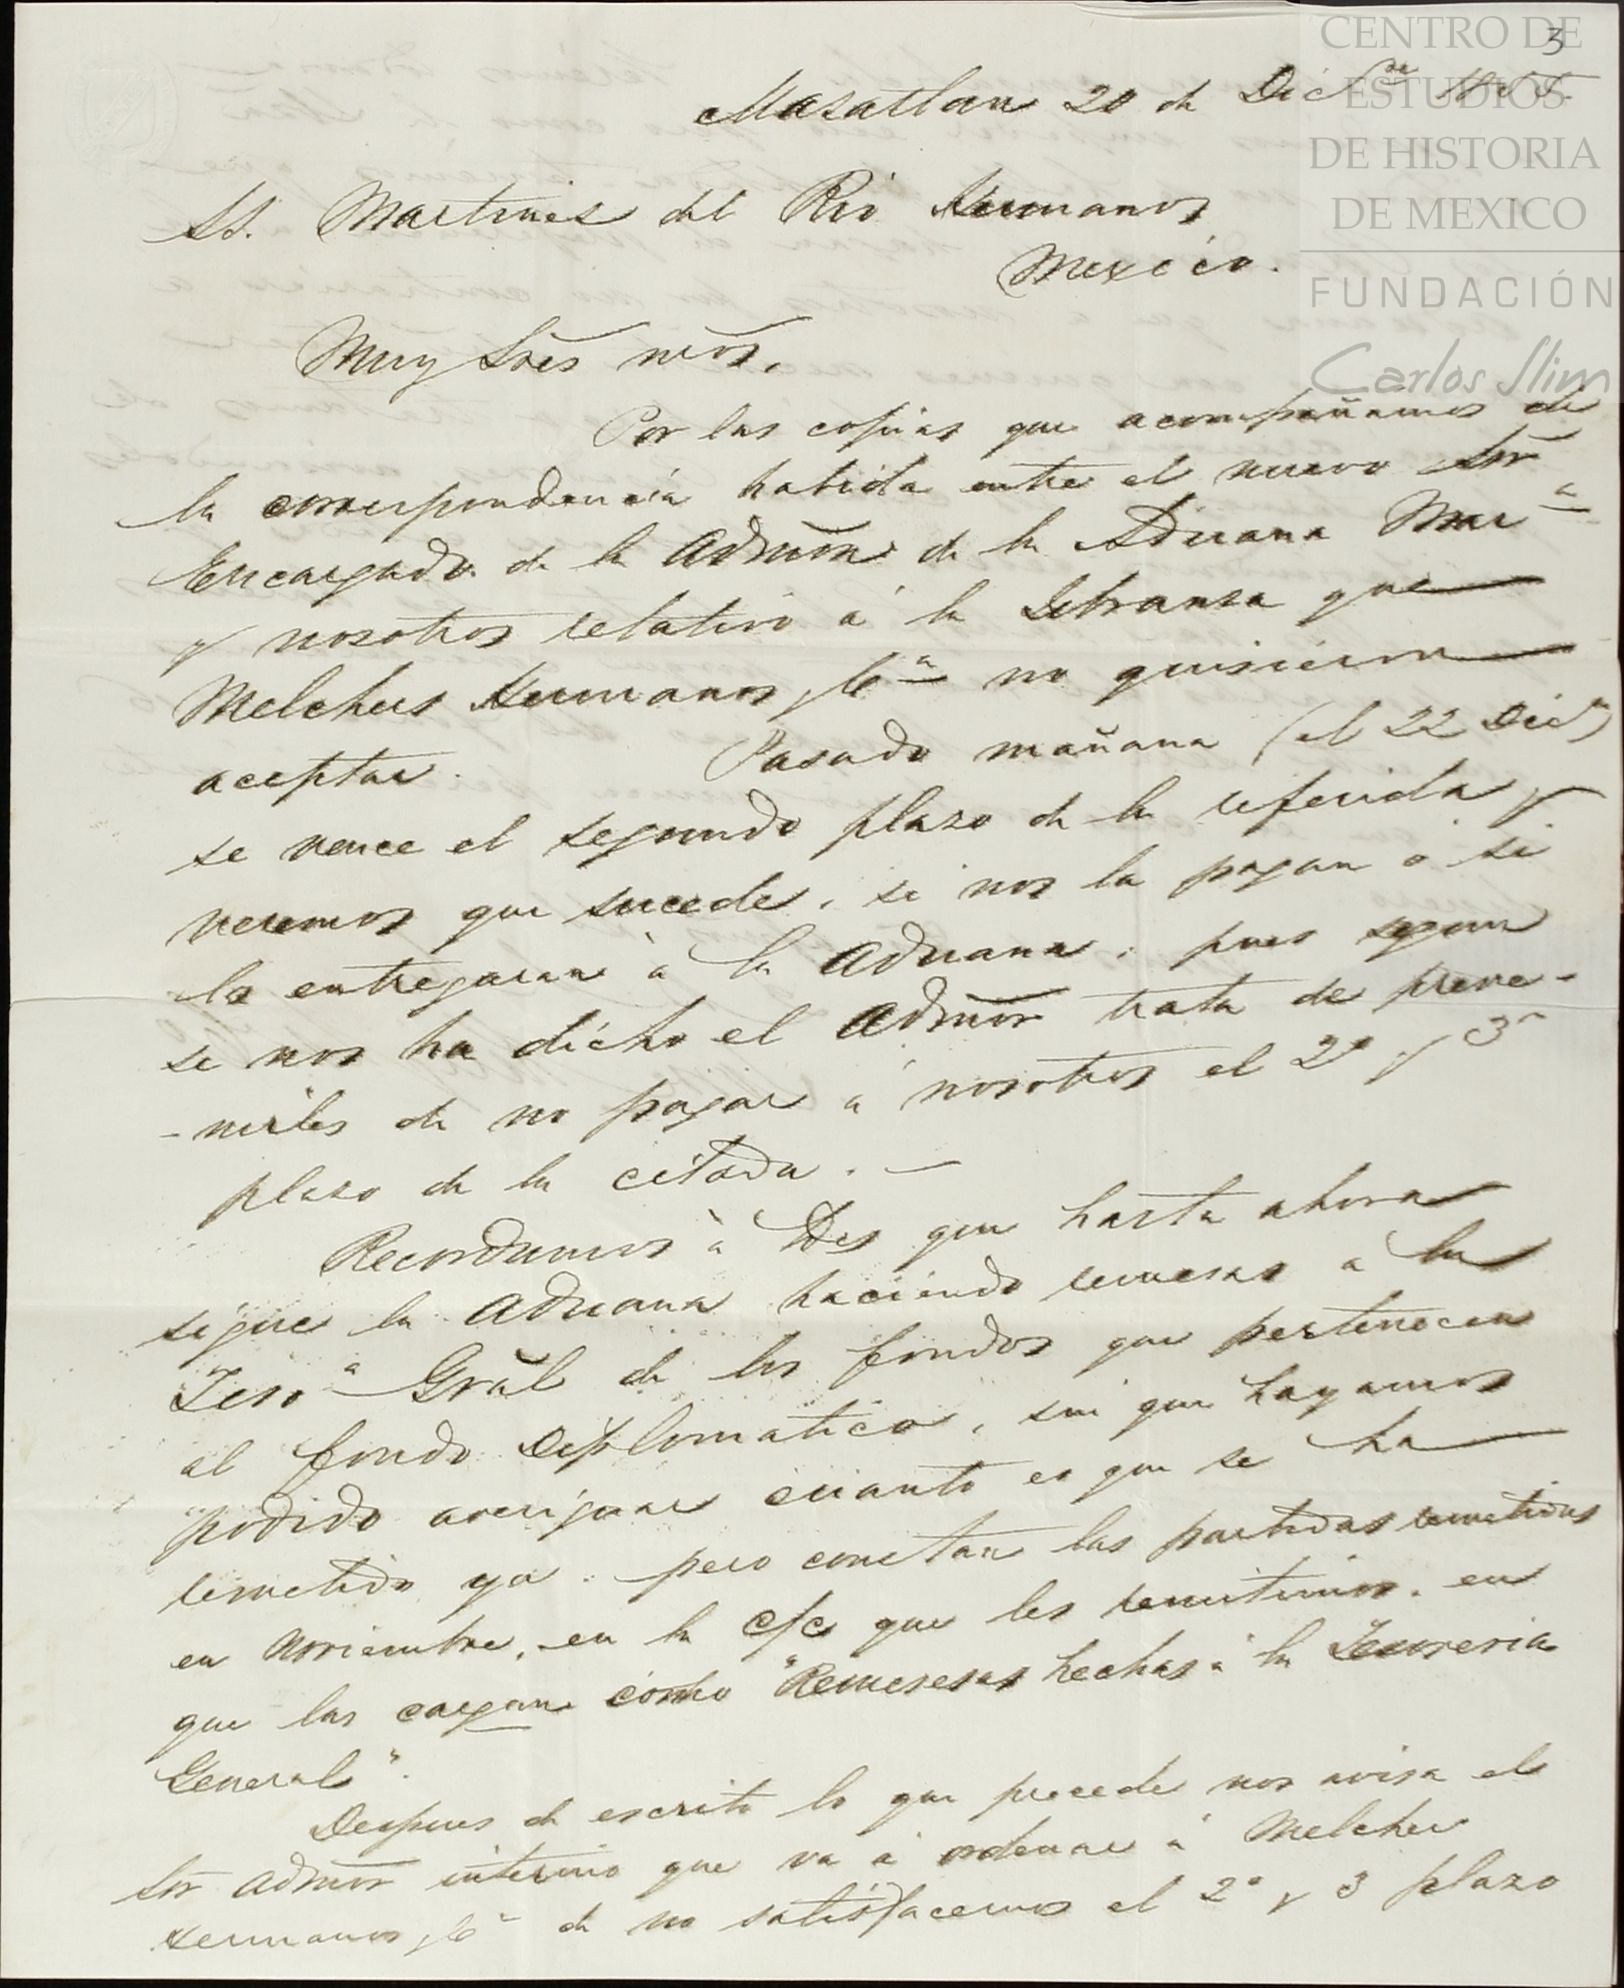 3
CENTRO DE
ESTUDIOS
DE HISTORIA
DE MEXICO
FUNDACIÓN
Carlos Slim
Masatlan 20 de Dic.re
SS. Martines del Rio Hermanos
Mexico.
Muy Sres nros.
Por las copias que acompañamos de
la correspondencia habida entre el nuevo Sor
Encargado de la Admon de la Aduana Mar.a
y nosotros relativo á la libransa que
Melchers Hermanos y Ca no quisieron
aceptar. Pasado mañana (el 22 Dice)
se vence el segundo plaso de la referida y
veremos que sucede, si nos la pagan o si
la entregaran à la Aduana, pues segun
se nos ha dicho el Admor trata de preve-
-nirles de no pagar à nosotros el 2º y 3º
plaso de la citada. —
Recordamos à Vdes que hasta ahora
sigue la Aduana haciendo remesas à la
Teso.a Gral de los fondos que pertenecen
al fondo Diplomatico, sin que hayamos
podido averiguar cuanto es que se ha
remetido ya. pero constan las partidas remetidas
en Noviembre, en la c/c que les remitimos. en
que las cargan como "Remeses hechas à la Tesoreria
General".
Despues de escrito lo que precede nos avisa el
Sor Admor interino que va à ordenar à Melchers
Hermanos y Ca de no satisfacernos el 2º y 3 plazo